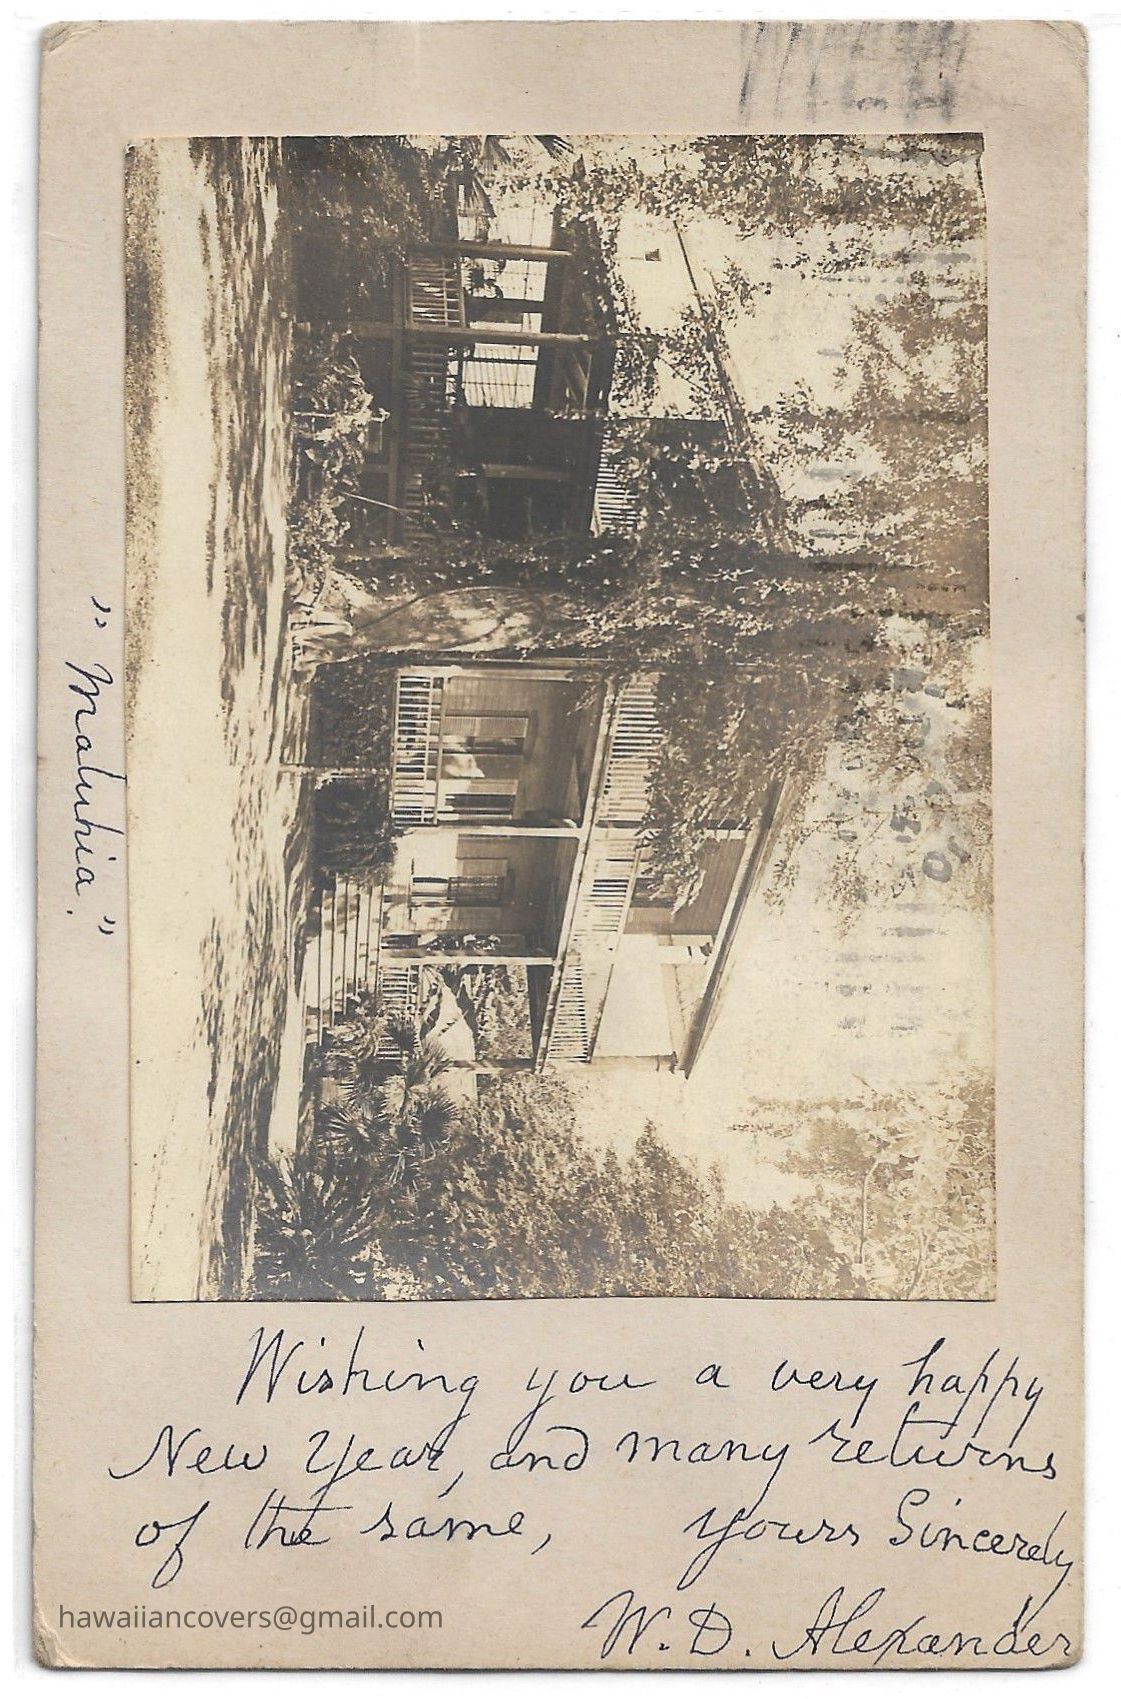 "Maluhia."
Wishing you a very happy
New Year, and many returns
of the same, yours Sincerely
W. D. Alexander
hawaiiancovers@gmail.com